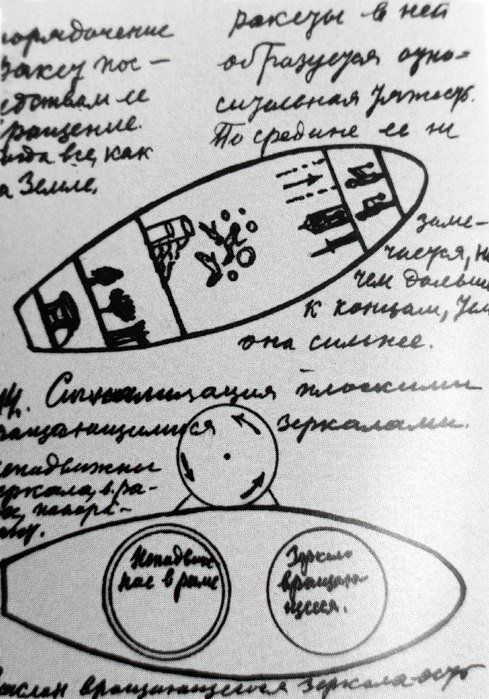 ракеты пос-
ее
вращение.
все, как
на Земле,
ракеты в ней
образуется отно-
сительная тяжесть.
По средине ее не
заме-
чается, но
чем дальше
к концам, тем
она сильнее.
14. Сигнализация плоскими
вращающимися зеркалами.
неподвижны
зеркала, в ра-
Неподвиж-
ное в раме
Зеркало
вращаю-
щееся.
вращающегося зеркала